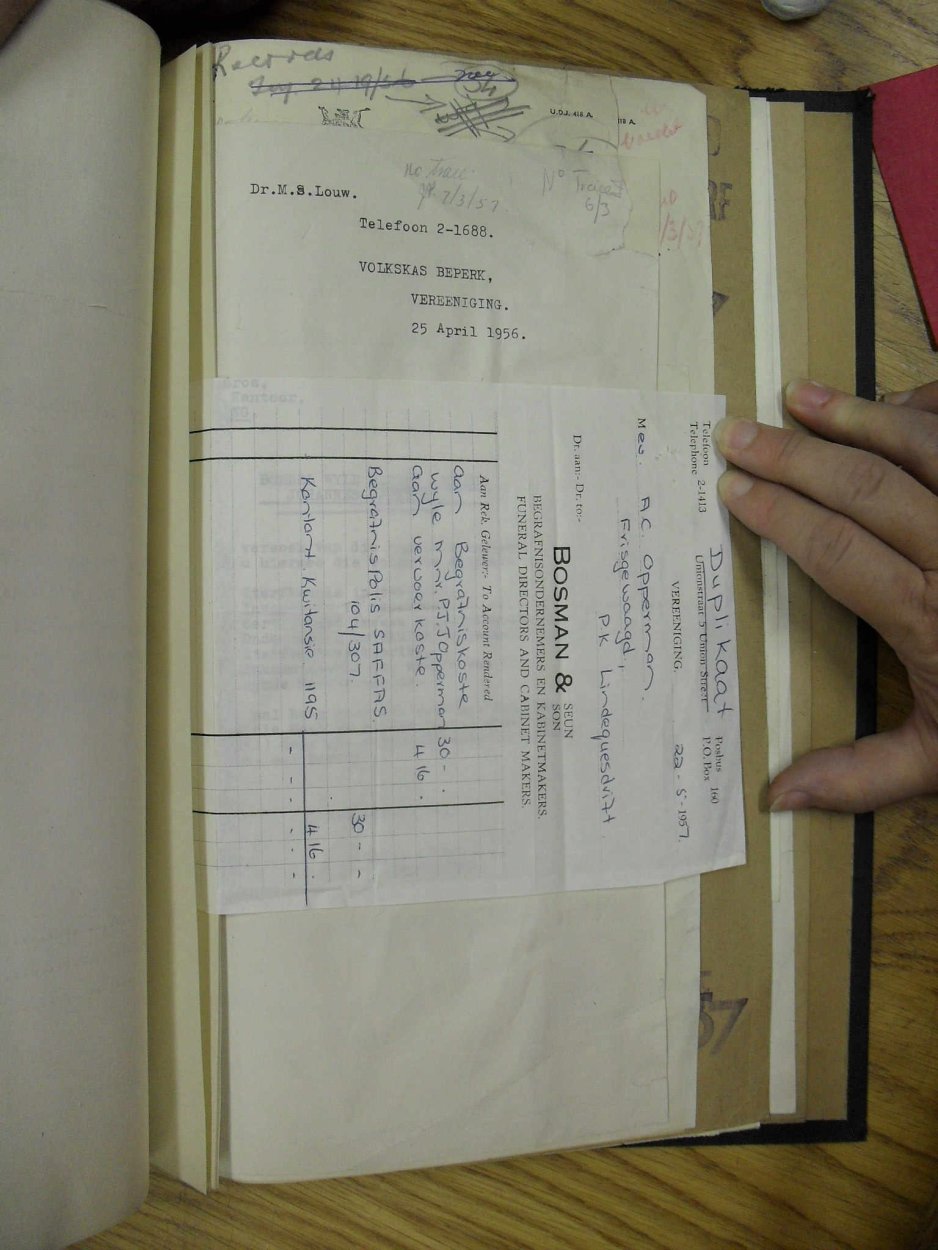 Records
U.D.J. 418 A.
118 A.
no trace
7/3/57.
No Trace
6/3
Dr.M.S.Louw.
Telefoon 2-1688.
VOLKSKAS BEPERK,
VEREENIGING.
25 April 1956.
Duplikaat
Telefoon
Telephone 2-1413
Posbus
P.O. Box 160
Unionstraat 5 Union Street
VEREENIGING, 22-5-1957.
Mev. A.C. Opperman.
Frisgewaagd,
P.K Lindequesdrift.
Dr. aan:- Dr. to:-
BOSMAN & SEUN SON
BEGRAFNISONDERNEMERS EN KABINETMAKERS.
FUNERAL DIRECTORS AND CABINET MAKERS.
Aan Rek. Gelewer:- To Account Rendered
Aan Begrafniskoste
Wyle Mnr. P.J.J Opperman 30 - .
Aan verwoer koste. 4 16 .
Begrafnis Polis SAFFAS
104/307. 30 - -
Kontant. Kwitansie 1195 4 16 .